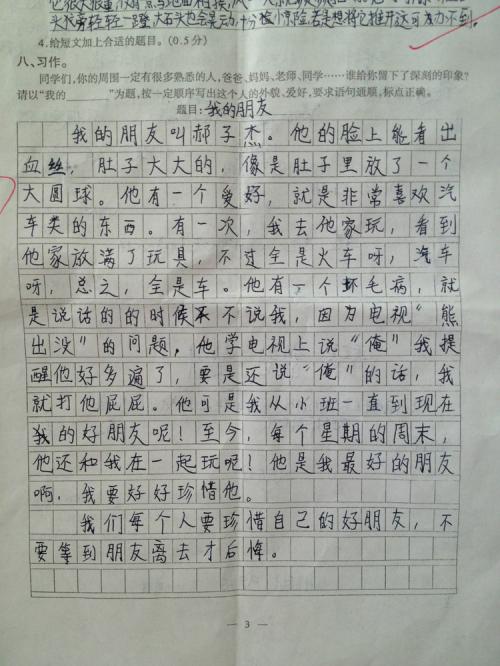 头代旁轻轻一蹬,大石头也会晃动,十分惊险,若是想将它推开这可办不到。
4.给短文加上合适的题目。(0.5分)
八、习作。
同学们,你的周围一定有很多熟悉的人,爸爸、妈妈、老师、同学……谁给你留下了深刻的印象?
请以“我的______”为题,按一定顺序写出这个人的外貌、爱好,要求语句通顺,标点正确。
题目:我的朋友
我的朋友叫郝子杰。他的脸上能看出
血丝,肚子大大的,像是肚子里放了一个
大圆球。他有一个爱好,就是非常喜欢汽
车类的东西。有一次,我去他家玩,看到
他家放满了玩具,不过全是火车呀,汽车
呀,总之,全是车。他有一个坏毛病,就
是说话的的时候不说我,因为电视“熊
出没”的问题,他学电视上说“俺”我提
醒他好多遍了,要是还说“俺”的话,我
就打他屁屁。他可是我从小班一直到现在
的好朋友呢!至今,每个星期的周末,
他还和我在一起玩呢!他是我最好的朋友
啊,我要好好珍惜他。
我们每个人要珍惜自己的好朋友,不
要等到朋友离去才后悔。
— 3 —